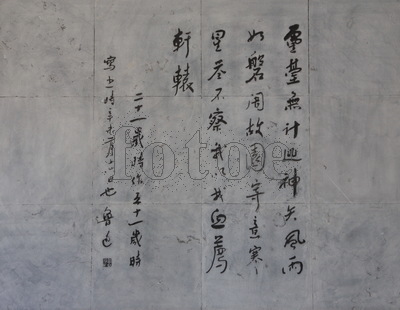 靈臺無計逃神矢風雨
如磐闇故園寄意寒
星荃不察我以我血薦
軒轅
二十一歲時作五十一歲時
寫之時辛未二月十六日也 魯迅
fotoe